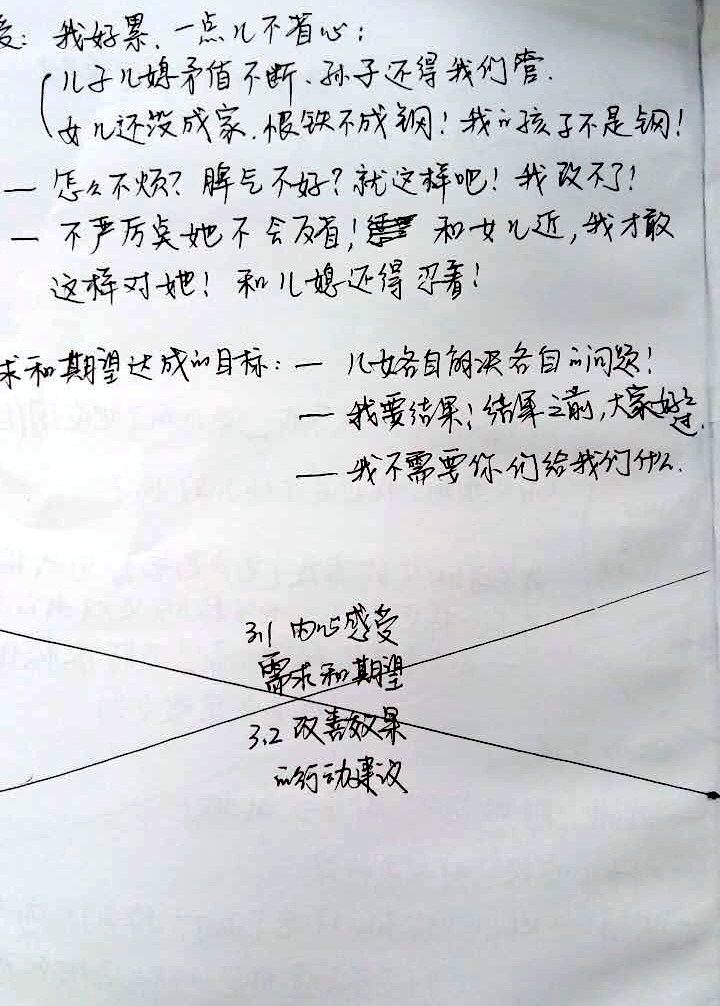 受：我好累、一点儿不省心：
儿子儿媳矛值不断、孙子还得我们管.
女儿还没成家、恨铁不成钢！我的孩子不是钢！
— 怎么不烦？脾气不好？就这样吧！我改不了！
— 不严厉点她不会反省！和女儿近，我才敢
这样对她！和儿媳还得忍着！
求和期望达成的目标：— 儿女各自解决各自的问题！
— 我要结果；结果之前，大家好好过.
— 我不需要你们给我们什么.
3.1 内心感受
需求和期望
3.2 改善效果
的行动建议